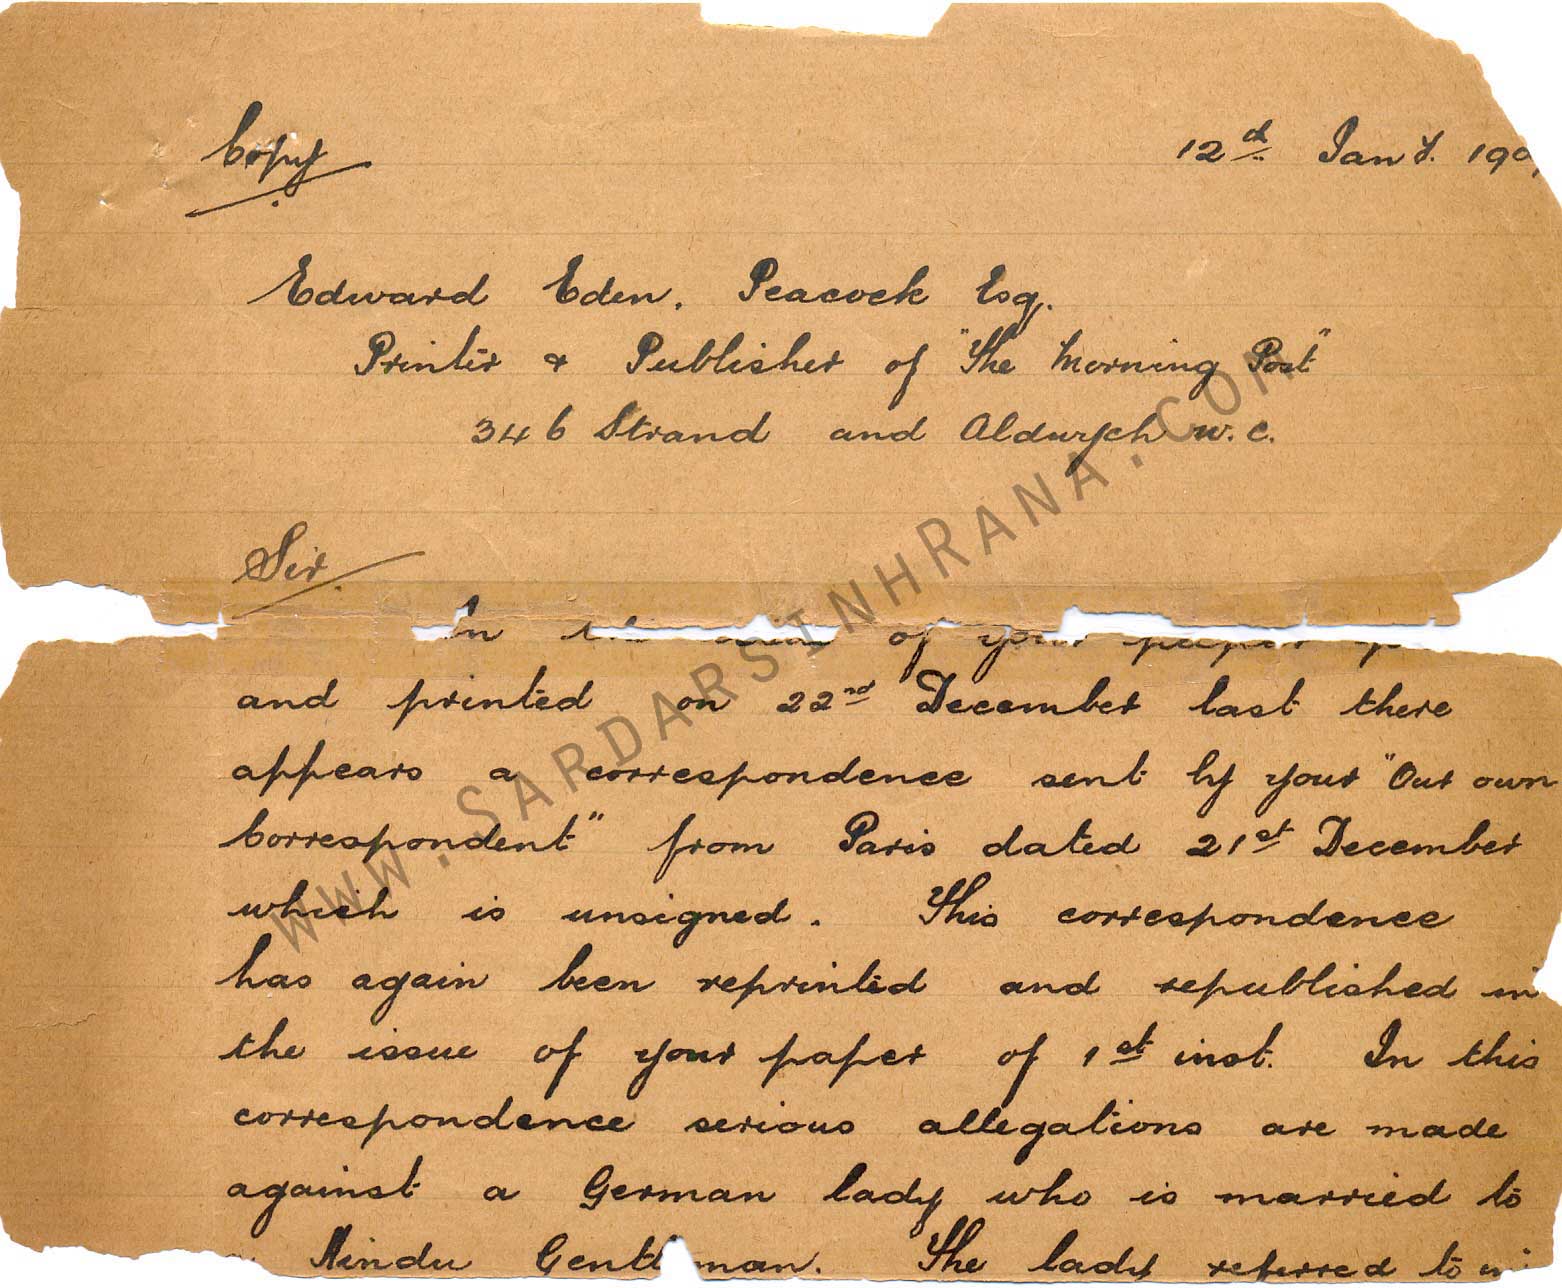 Copy
12d Jany. 190
Edward Eden. Peacock Esq.
Printer & Publisher of "The Morning Post"
346 Strand and Aldwych W.C.
Sir
In the issue of your paper
and printed on 22nd December last there
appears a correspondence sent by your "Our own
Correspondent" from Paris dated 21st December
which is unsigned. This correspondence
has again been reprinted and republished in
the issue of your paper of 1st inst. In this
correspondence serious allegations are made
against a German lady who is married to
Hindu Gentleman. The lady referred to in
WWW.SARDARSINHRANA.COM